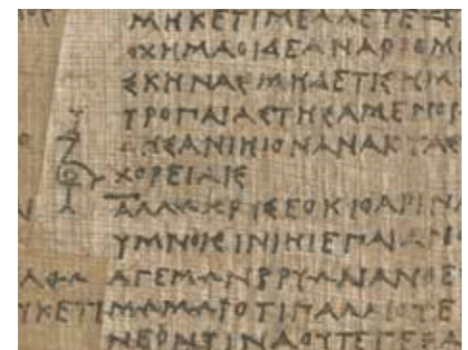 ΜΗΚΕΤΙΜΕΛΛΕΤΕ
ΟΧΗΜΑΟΙΔΕΑΝΑΡΙΘΜΟ
ΣΚΗΝΑΣΜΗΔΕΤΙΣΗΜ
ΤΡΟΠΑΙΑΣΤΗΣΑΜΕΝΟΙ
ΣΑΝΙΗΙΟΝΑΝΑΚΤΑΣ
ΧΟΡΕΙΑΙΣ
ΑΛΛΩΧΡΥΣΕΟΚΙΘΑΡΙΝΑ
ΥΜΝΟΙΣΙΝΙΗΙΕΠΑΙΑΝ
ΑΓΕΜΩΝΒΡΥΩΝΑΝΘΕ
ΜΩΜΩΙΟΤΙΠΑΛΑΙΟΤΕ
ΝΕΟΝΤΙΝΑΟΥΤΕΓΕΡΑ